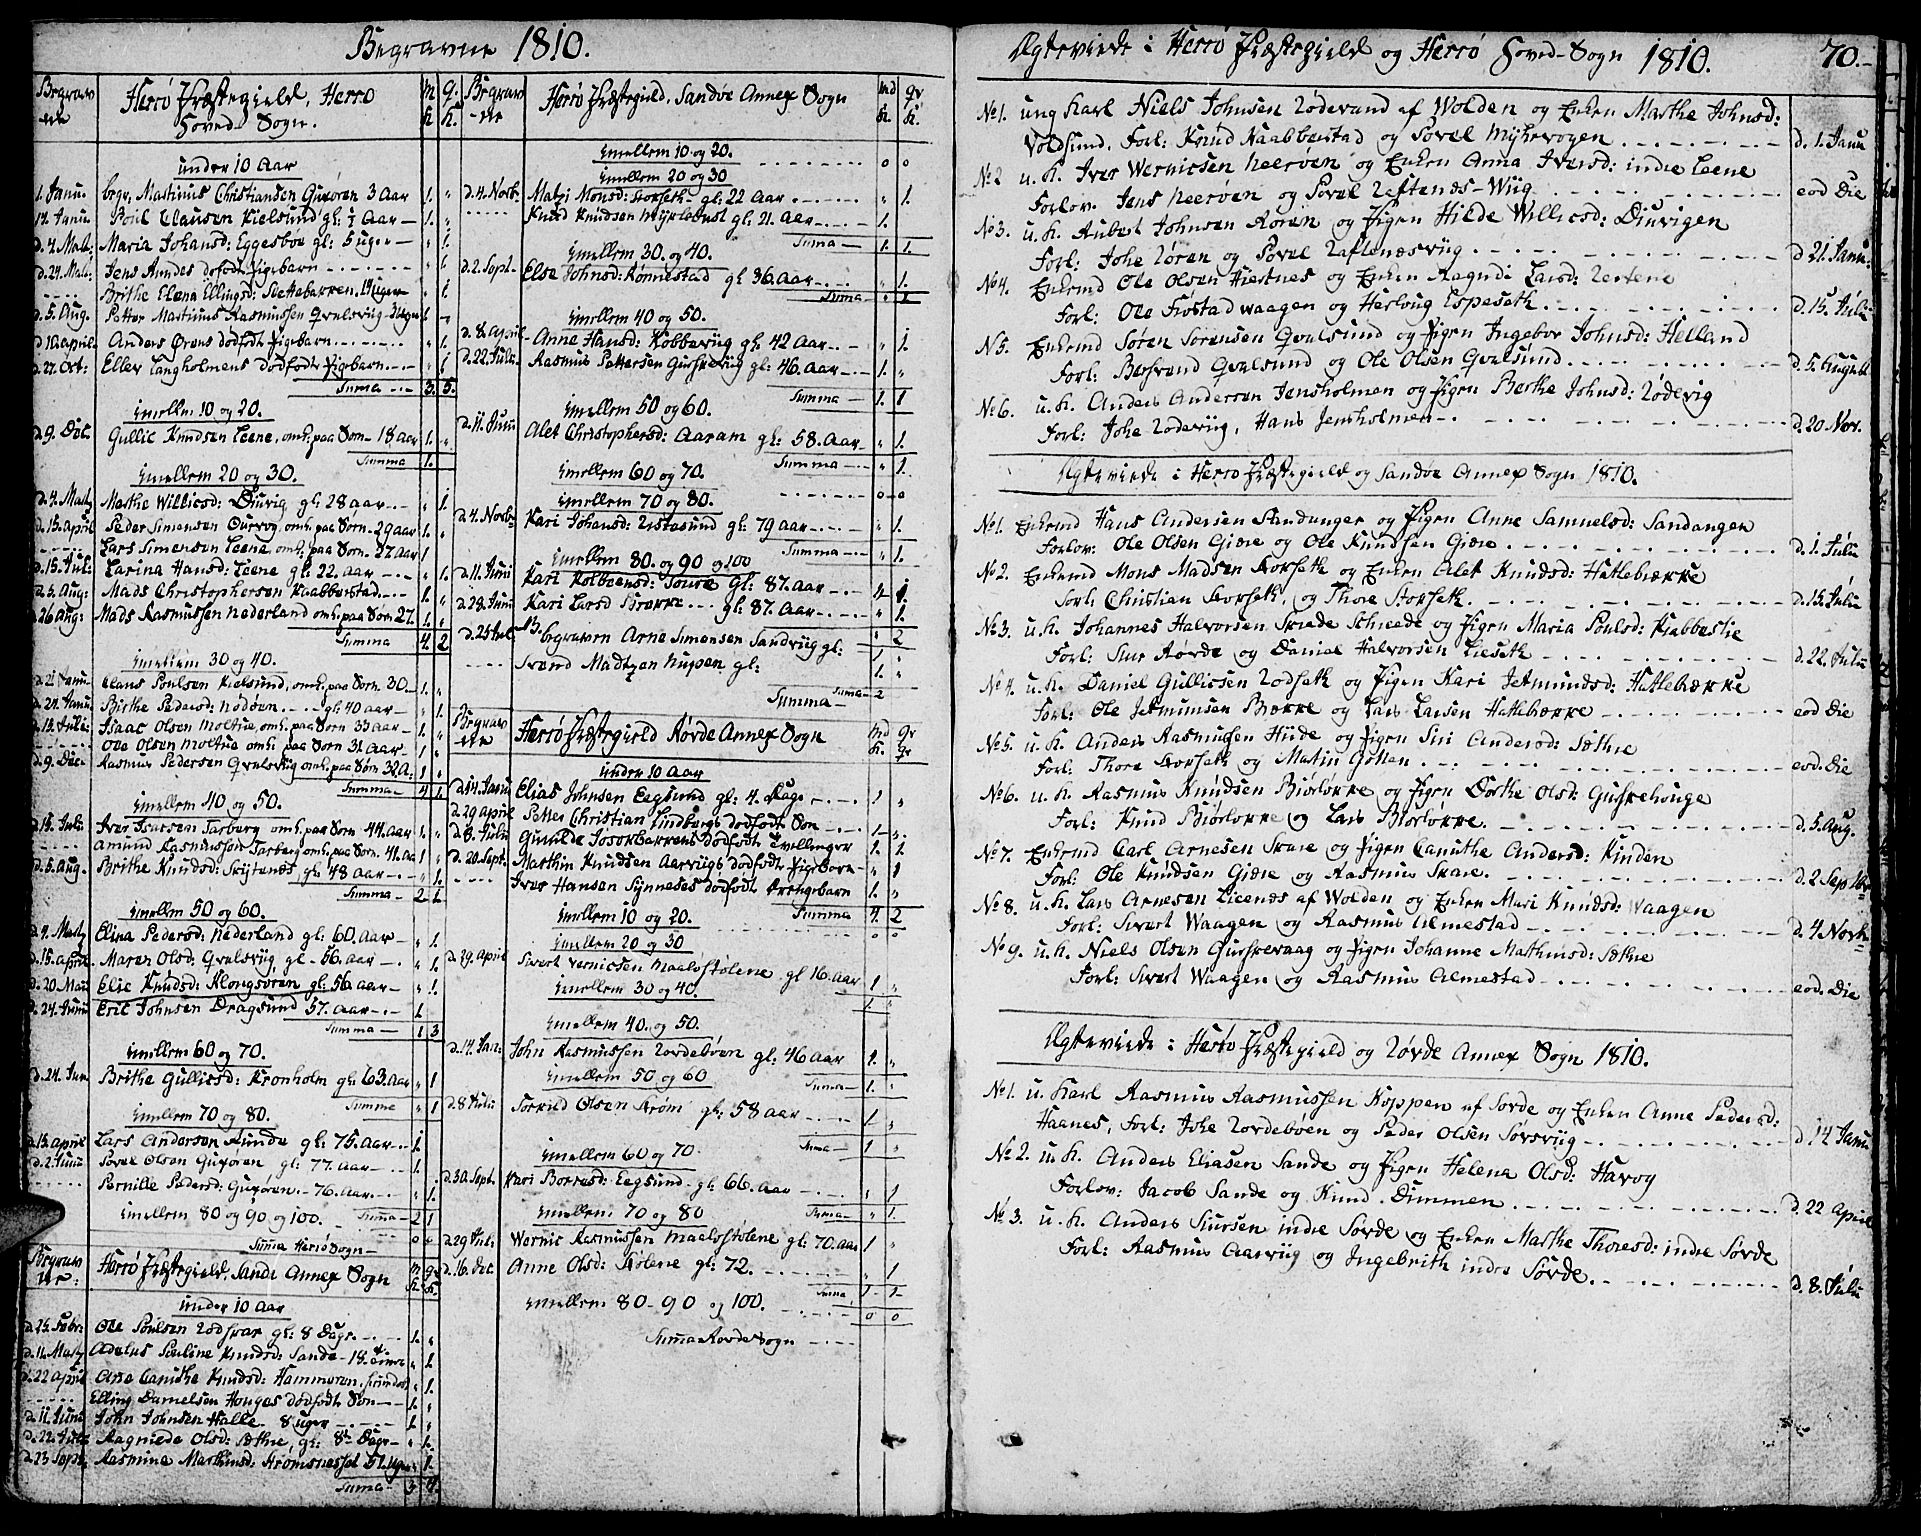 Begravne 1810.
Begrav
ne
Herrö Præstegield, Herrö
Hoved-Sogn.
m. Q.
K. K.
under 10 Aar
1. Janu. begr. Mastinus Christiansen Gurören 3 Aar 1. "
14. Janu. Poul Clausen Kielsund gl: ½ Aar 1.
d. 4. Mart: Maria Johansd: Eggesböe gl: 5 uger " 1.
d. 24. Mar: Jens Aundes dödfödt Pigebarn " 1.
Brithe Elena Ellingsd: Slettebakken. 14 uger 1.
d. 5. Aug. Petter Martinus Rasmussen Qvalsviig
d. 10 april. Anders Örens dödfödt Pigebarn 1.
d. 27. Oct: Eller Langholmens dödfödt Pigebarn 1.
Summa 3. 5.
imellem 10 og 20.
d. 9. Dec. Gullic Knudsen Leene, omk: paa Söen 18 aar 1. "
Summa 1.
imellem 20 og 30.
d. 4. Martz Marthe Willicsd: Diuvig gl: 28 aar " 1.
d. 15. april Peder Simensen Ourvog omk: paa Söen. 29 aar 1.
Lars Simensen Leene, omk: paa Söen. 27 Aar 1
d. 15. Juli: Larina Hansd: Leene gl: 22. aar " 1.
d. 5. Aug: Mads Christophersen Kaabberstad 1. "
26 Aug: Mads Rasmussen Nederland omk: paa Söen 27. 1. "
Summa 4. 2
imellem 30 og 40.
d. 21 Janu. Claus Poulsen Kielsund, omk: paa Söen. 30 1. "
d. 24. Janu. Birthe Pedersd: Nödöen gl: 40 aar " 1.
d. 13. Juli: Isaac Olsen Moltue omk: paa Söen 33 aar 1. "
Ole Olsen Moltue omk: paa Söen 31 Aar 1
d. 9. Dec. Rasmus Pedersen Qvalsviig omk: paa Söen 32 A: 1
Summa 4. 1.
imellem 40 og 50.
d. 15. Juli. Iver Isacsen Tarberg omk: paa Söen 44. aar 1. "
Amund Rasmussen Tarberg omk: paa Söen. 41. aar 1
d. 5. Aug. Brithe Knudsd: Skytenæs gl: 48 aar " 1.
Summa 2. 1.
imellem 50 og 60.
d. 4. Martz Elina Pedersd: Nederland gl: 60. Aar " 1.
d. 15. april. Maren Olsd: Qvalsviig, gl 56. aar " 1.
d. 20 Mai Elie Knudsd: Klongsören gl: 56 aar " 1.
d. 24. Juni Eric Johnsen Dragsund 57. aar 1.
Summa 1 3
imellem 60 og 70.
d. 24. Jan Brithe Gullicsd: Kronholm gl: 63. Aar " 1
Summa " 1
imellem 70 og 80.
d. 15. april Lars Andersen Runde gl: 75. Aar 1.
d. 2. Juni Povel Olsen Gurören gl: 77. aar 1.
Pernille Pedersd: Gurören. 76. aar " 1.
imellem 80 og 90 og 100. Summa 2 1
Summa Herrö Sogn
Begravne: Herrö Præstegield, Sande Annex Sogn
under 10 aar
d. 25. Febr: Ole Poulsen Rödskar gl: 8 Dage 1. "
d. 11. Martz Adelus Pauline Knudsd: Sande 14 " 1.
d. 22 april Ane Caniske Knudsd: Hammeren " 1.
Elling Danielsen Houges dödfödt Sön 1. "
d. 11. Juni John Johnsen Halle 8 uger 1. "
d. 22. Julii Ragniede Olsd: Sæthre, gl: 8 Dage " 1.
d. 23 Sept. Rasmine Marthinsd: Strömsnesset 51. uger 1
Summa 3 4.
Begrav
ne
Herrö Præstegield, Sandöe Annex Sogn
md qv
K. K.
imellem 10 og 20. 0 0
imellem 20 og 30
d. 4. Novb. Matzi Monsd: Storseth gl: 22 Aar 1.
Knud Knudsen Myklebust gl: 21. aar 1.
Suma 1. 1.
imellem 30. og 40.
d. 2. Sept. Else Johnsd: Rönnestad gl: 36. aar 1.
Suma " 1
imellem 40 og 50.
d. 8 april. Anne Hansd: Kobberviig gl: 42 Aar " 1.
d. 22. Juli: Rasmus Pettersen Gurskeviig gl: 46. Aar 1. "
Summa 1. 1
imellem 50 og 60.
d. 11. Juni Alet Christophersd: Aaram gl: 58. Aar " 1.
Summa " 1.
imellem 60 og 70. 0 0
imellem 70 og 80.
d. 4. Novb. Kari Johansd: Ristesund gl: 79 aar " 1.
Summa " 1.
imellem 80. og 90 og 100
d. 11. Juni Kari Kolbeensd: Soure gl: 87. aar 1.
d. 28. Juni Kari Larsd Brække gl: 87. aar 1.
d. 25 Juli begraven Arne Simonsen Sandviig gl: " 2
Svend Madtzen Nupen gl: 1.
Summa 2
Begravne
Herrö Præstegield Rövde Annex Sogn
md qv
under 10 Aar
d. 14. Janu Elias Johnsen Eegsund gl: 4. Dage 1 "
d. 29 april Petter Christian Lindbergs dödfödt Sön 1. "
d. 8. Julii Gunilde Josokbakkens dödfödt Tvellinger 1. 1.
d. 20. Sept. Marthin Knudsen Aarviigs dödfödt Pigebarn " 1
Iver Hansen Synneses dödfödt drengebarn 1. "
imellem 10 og 20. Summa 4. 2
imellem 20 og 30 0 0
d. 29. april Sivert Vernicsen Maalostolene gl 16. aar 1 "
imellem 30 og 40. 1.
imellem 40. og 50.
d. 14. Jan: John Rasmussen Rovdeböen gl: 46 aar 1. "
imellem 50 og 60 Summa 1. "
d. 8 Julii Torkild Olsen Ström gl: 58 aar 1 "
imellem 60 og 70. Suma 1 "
d. 30. Sept. Kari Borresd: Eegsund gl: 66. aar " 1
imellem 70 og 80 Suma " 1.
d. 29 Juli: Wernic Rasmussen Maalostolene gl: 70. aar 1 "
d. 16. Dec. Anne Olsd: Stölene gl: 72. " 1
Summa 1 1
imellem 80-90 og 100. 0 0
Summa Rovde Sogn
Ægteviede i Herrö Præstegield og Herrö Hoved-Sogn 1810. 70.
No 1. ung Karl Niels Johnsen Röderand af Wolden og Enken Marthe Johnsd:
Voldsund. Forl: Knud Kaabberstad og Povel Myhrvogen d. 1. Janu
No 2 u. K. Iver Wernicsen Neeröen og Enken Anna Iversd: indre Leene
Forlov. Jens Neeröen og Povel Reftenæs-Wiig eod Die
No 3. u. K. Aubert Johnsen Roren og Pigen Hilde Willicsd: Diurvigen
Forl: Johe Rören og Povel Raftenæsviig d. 21. Janu.
No 4. Enkemd Ole Olsen Hiertnes og Enken Ragndi Larsd: Leetene
Forl: Ole Fröstadwaagen og Herloug Espeseth d. 15. Julii
No 5. Enkemd Sören Sörensen Qvalsund og Pigen Ingebor Johnsd: Helland
Forl: Bertrand Qvalsund og Ole Olsen Qvalsund d. 5. August
No 6. u. K. Anders Andersen Jensholmen og Pigen Berthe Johnsd: Röderig
Forl: Johe Röderiig, Hans Jensholmen d. 20 Nov.
Ægteviede i Herrö Præstegield og Sandöe Annex Sogn 1810.
No 1. Enkemd Hans Andersen Standanger og Pigen Anne Samuelsd: Sandangen
Forlov: Ole Olsen Giære og Ole Knudsen Giære d. 1. Julii
No 2. Enkemd Mons Madsen Storseth og Enken Alet Knudsd: Hatlebrække
Forl: Christian Storseth, og Thore Storseth d. 15. Julii
No 3. u. K. Johannes Halvorsen Skrede og Pigen Maria Poulsd: Kjabbestie
Forl: Siur Rövde og Daniel Halvorsen Lieseth d. 22. Julii
No 4. u. K. Daniel Gullicsen Rodseth og Pigen Kari Jetmundsd: Hatlebrække
Forl: Ole Jetmunsen Brække og Lars Larsen Hatlebrække eod Die
No 5. u. K. Anders Rasmussen Hiide og Pigen Siri Andersd: Sæthre
Forl: Thore Storseth og Matin Götten eod. Die
No 6. u. K. Rasmus Knudsen Biörlökke og Pigen Dorthe Olsd: Gurskehouge
Forl: Knud Biörlökke og Lars Biörlökke d. 5. Aug.
No 7. Enkemd Carl Arnesen Skare og Pigen Canuthe Andersd: Kinden
Forl: Ole Knudsen Giære og Rasmus Skare. d. 2 Septbr
No 8. u. K. Lars Arnesen Licenæs af Wolden og Enken Mari Knudsd: Waagen
Forl: Sivert Waagen og Rasmus Almestad d. 4 Novb
No 9. u. K. Niels Olsen Gurskevaag og Pigen Johanne Mathiasd: Sæthre
Forl: Sivert Waagen og Rasmus Almestad eod. Die
Ægteviede i Herrö Præstegield og Rövde Annex Sogn 1810.
No 1. u. Karl Rasmus Rasmussen Koppen af Sörde og Enken Anne Pedersd:
Haanes, Forl: Johe Rovdeböen og Peder Olsen Sörsviig d. 14 Janu
No 2. u. K. Anders Eliasen Sande og Pigen Helena Olsd: Havog
Forlov: Jacob Sande og Knud Dimmen d. 22 April
No 3. u. K. Anders Siursen indre Sörde og Enken Marthe Thoresd: indre Sörde
Forl: Rasmus Aarviig og Ingebrith indre Sörde. d. 8. Julii